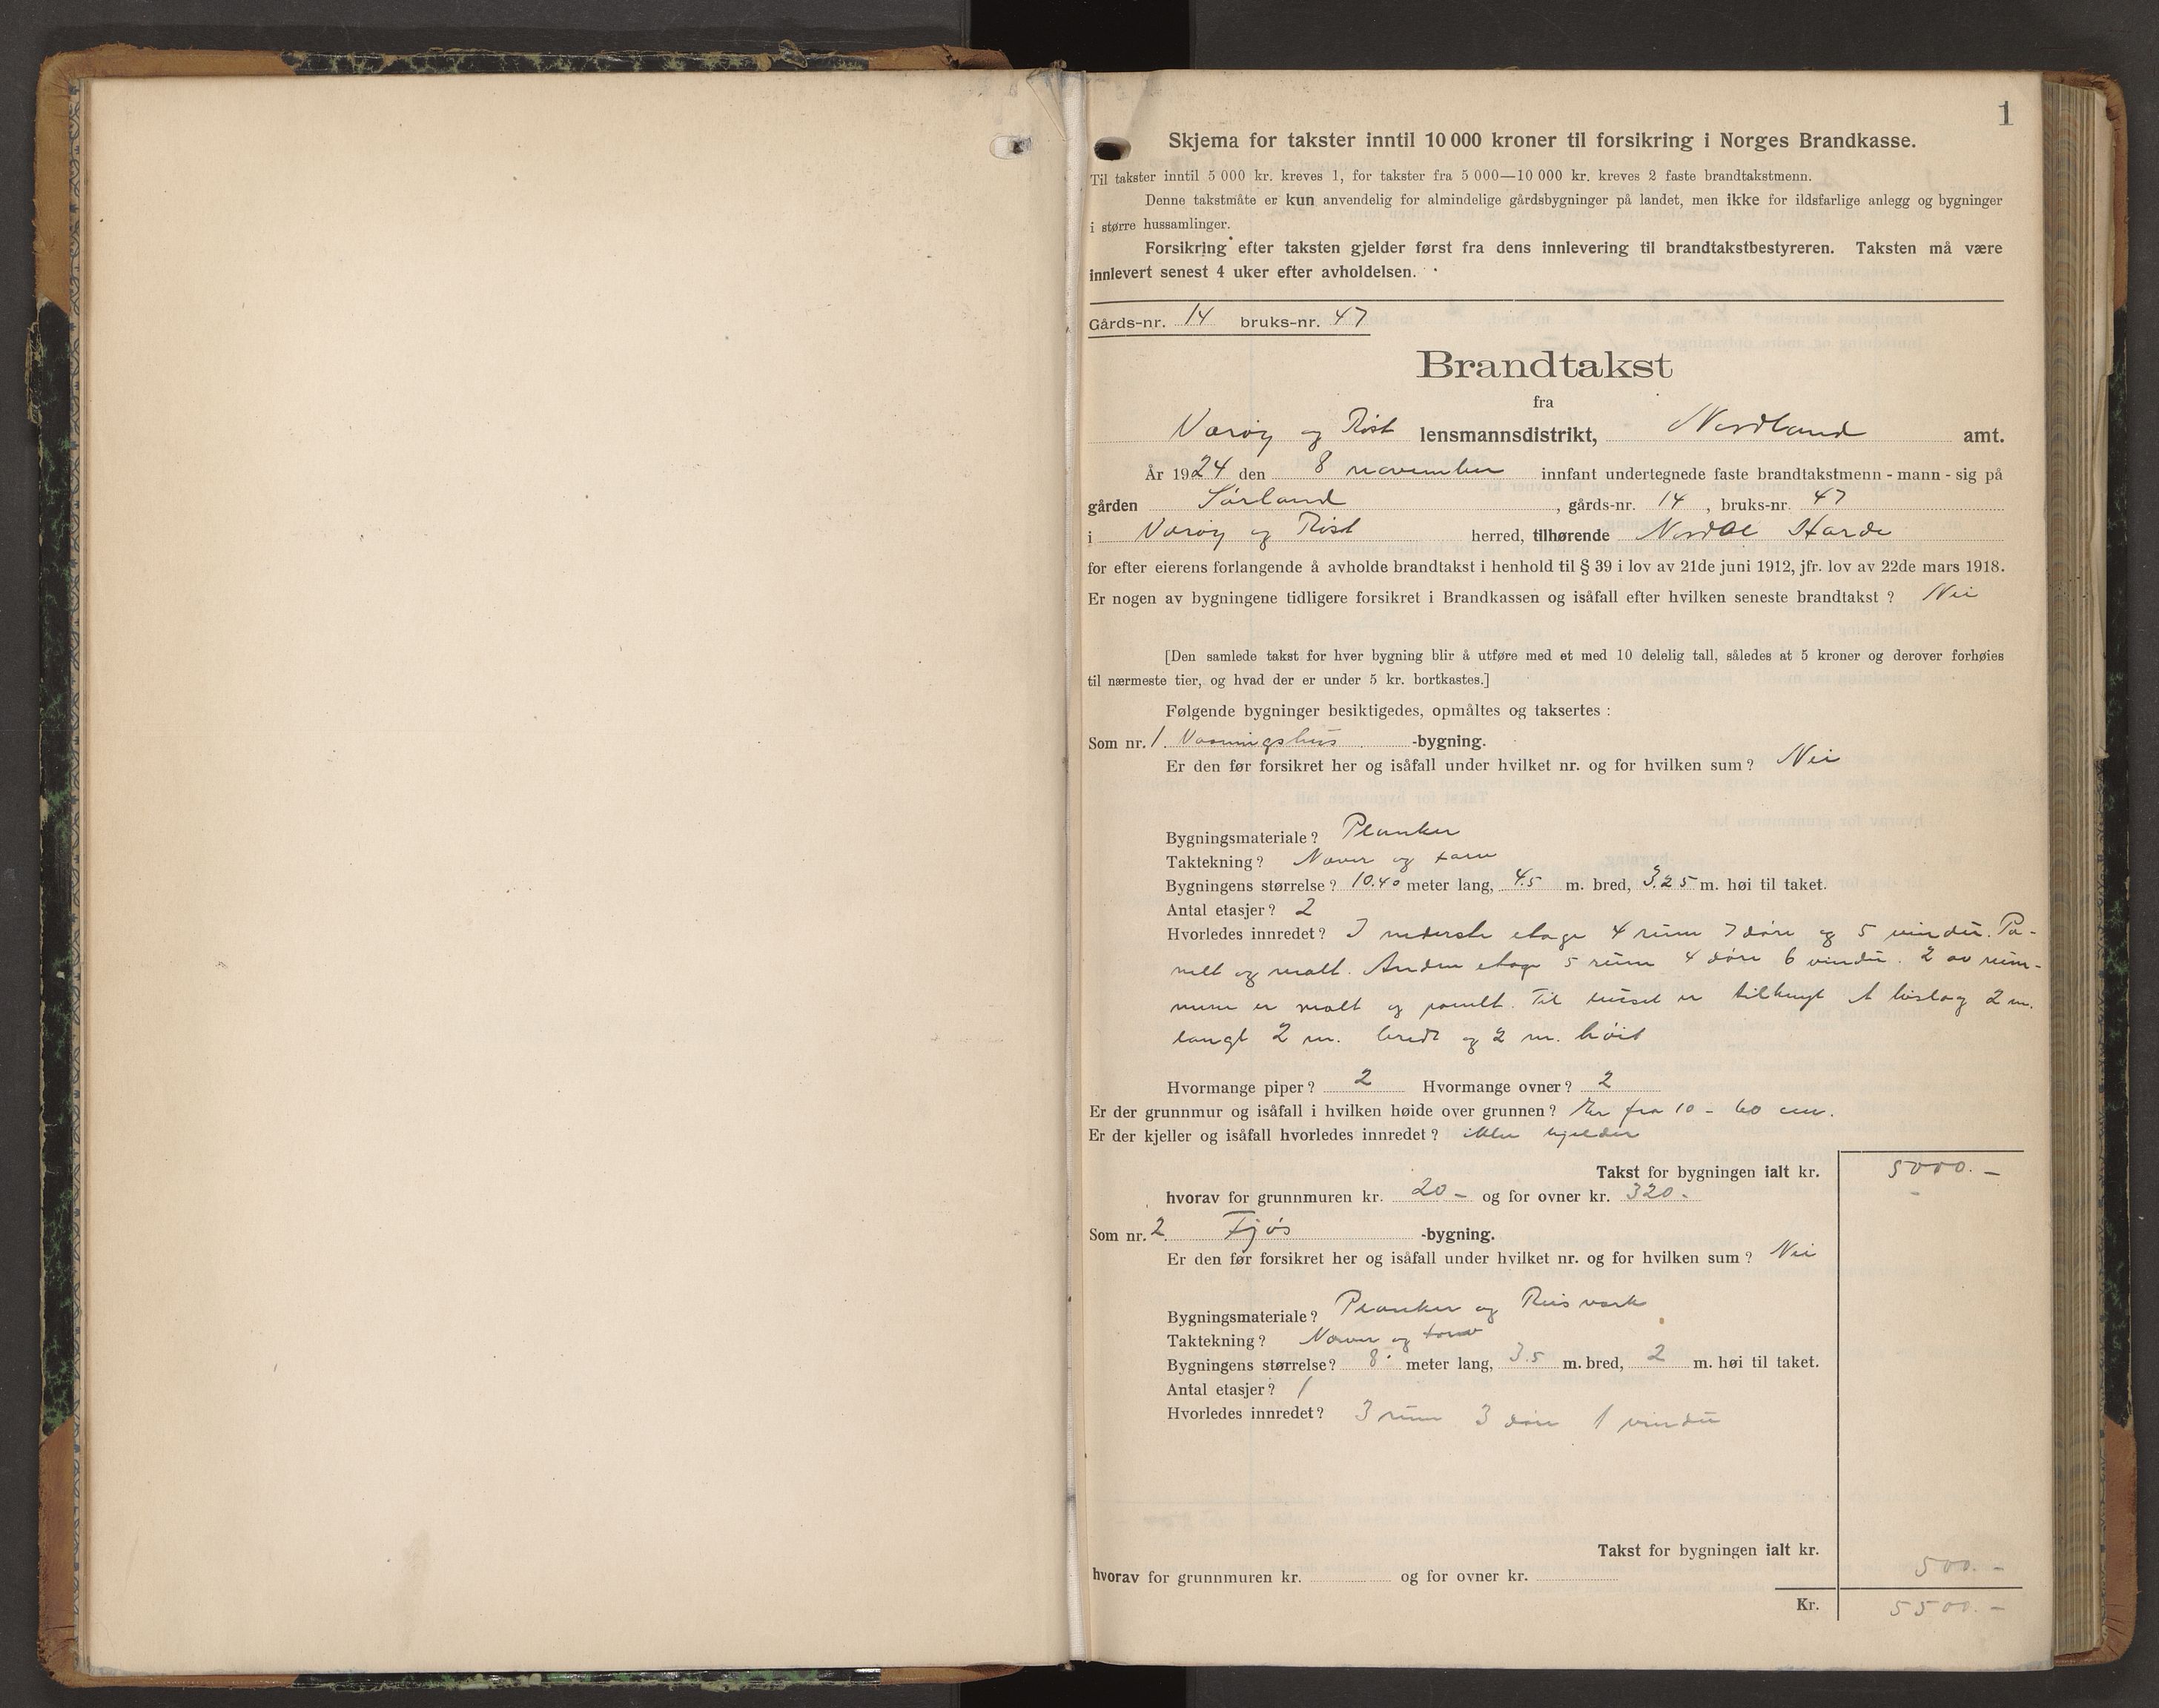 1
Skjema for takster inntil 10 000 kroner til forsikring i Norges Brandkasse.
Til takster inntil 5 000 kr. kreves 1, for takster fra 5 000—10 000 kr. kreves 2 faste brandtakstmenn.
Denne takstmåte er kun anvendelig for almindelige gårdsbygninger på landet, men ikke for ildsfarlige anlegg og bygninger
i større hussamlinger.
Forsikring efter taksten gjelder først fra dens innlevering til brandtakstbestyreren. Taksten må være
innlevert senest 4 uker efter avholdelsen.
Gårds-nr. 14 bruks-nr. 47
Brandtakst
fra
Værøy og Røst lensmannsdistrikt, Nordland amt.
År 1924 den 8 november innfant undertegnede faste brandtakstmenn - mann - sig på
gården Sørland, gårds-nr. 14, bruks-nr. 47
i Værøy og Røst herred, tilhørende Nordal Harde
for efter eierens forlangende å avholde brandtakst i henhold til § 39 i lov av 21de juni 1912, jfr. lov av 22de mars 1918.
Er nogen av bygningene tidligere forsikret i Brandkassen og isåfall efter hvilken seneste brandtakst? Nei
[Den samlede takst for hver bygning blir å utføre med et med 10 delelig tall, således at 5 kroner og derover forhøies
til nærmeste tier, og hvad der er under 5 kr. bortkastes.]
Følgende bygninger besiktigedes, opmåltes og taksertes:
Som nr. 1. Vaaningshus -bygning.
Er den før forsikret her og isåfall under hvilket nr. og for hvilken sum? Nei
Bygningsmateriale? Planker
Taktekning? Næver og torv
Bygningens størrelse? 10.40 meter lang, 4.5 m. bred, 3.25 m. høi til taket.
Antal etasjer? 2
Hvorledes innredet? I nederste etage 4 rum 7 døre og 5 vindu. Pa-
nelt og malt. Anden etage 5 rum 4 døre 6 vindu. 2 av rum-
mene er malt og panelt. Til huset er tilbygt et bislag 2 m.
langt 2 m. bredt og 2 m. høit
Hvormange piper? 2 Hvormange ovner? 2
Er der grunnmur og isåfall i hvilken høide over grunnen? Mur fra 10 - 60 cm.
Er der kjeller og isåfall hvorledes innredet? ikke kjelder
Takst for bygningen ialt kr. 5000.-
hvorav for grunnmuren kr. 20- og for ovner kr. 320.-
Som nr. 2. Fjøs -bygning.
Er den før forsikret her og isåfall under hvilket nr. og for hvilken sum? Nei
Bygningsmateriale? Planker og Reisverk
Taktekning? Næver og torv
Bygningens størrelse? 8 meter lang, 3.5 m. bred, 2 m. høi til taket.
Antal etasjer? 1
Hvorledes innredet? 3 rum 3 døre 1 vindu
Takst for bygningen ialt kr. 500.-
hvorav for grunnmuren kr. og for ovner kr.
Kr. 5500.-